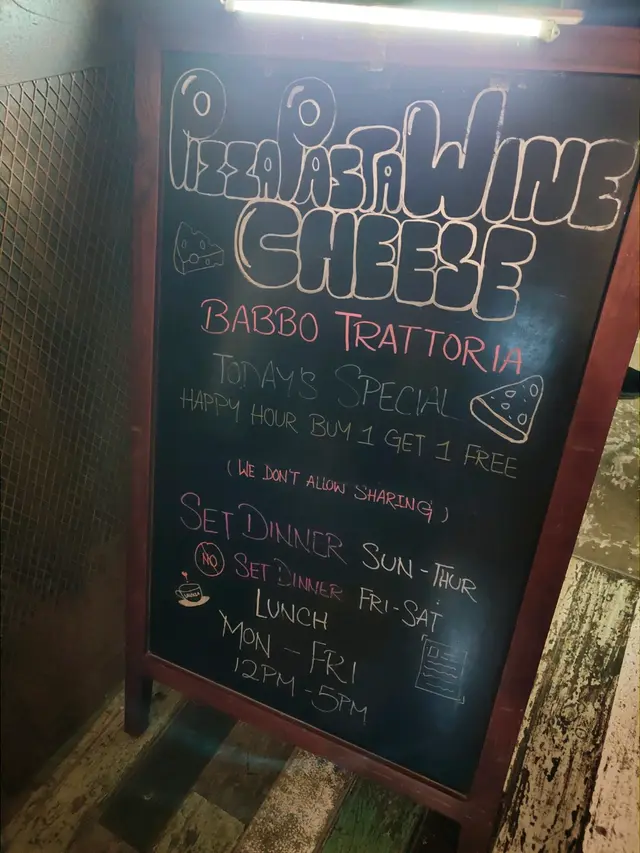 PIZZA PASTA WINE
CHEESE
BABBO TRATTORIA
TODAY'S SPECIAL
HAPPY HOUR BUY 1 GET 1 FREE
(WE DON'T ALLOW SHARING)
SET DINNER SUN-THUR
NO SET DINNER FRI-SAT
LUNCH
MON - FRI
12PM - 5PM